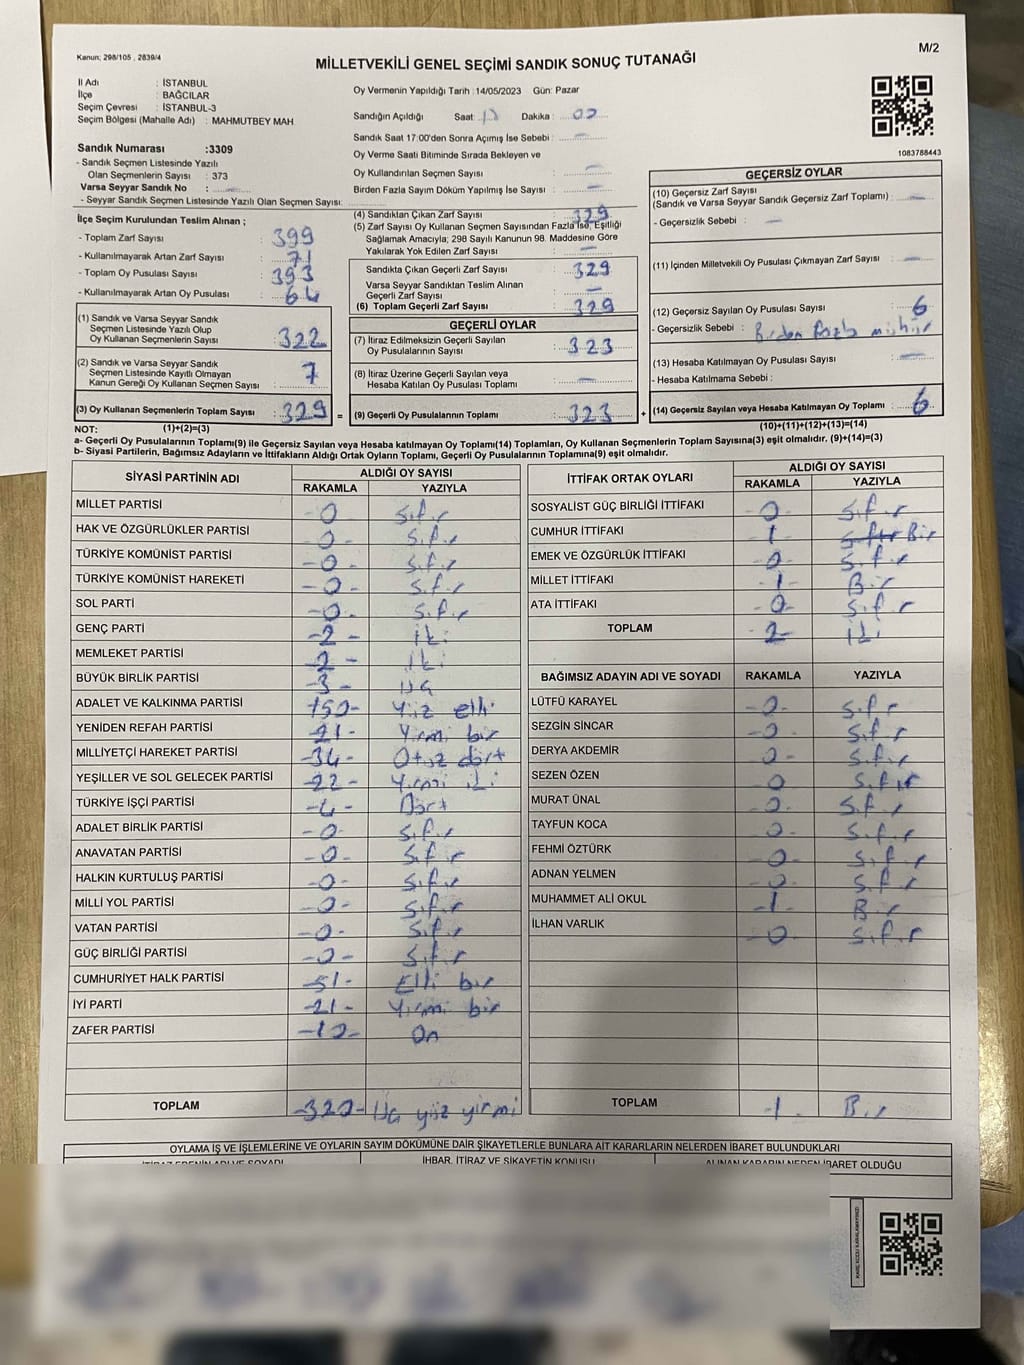 Kanun; 298/105 , 2839/4
M/2
MİLLETVEKİLİ GENEL SEÇİMİ SANDIK SONUÇ TUTANAĞI
İl Adı : İSTANBUL
İlçe : BAĞCILAR
Seçim Çevresi : İSTANBUL-3
Seçim Bölgesi (Mahalle Adı) : MAHMUTBEY MAH
Oy Vermenin Yapıldığı Tarih :14/05/2023 Gün: Pazar
Sandığın Açıldığı Saat: Dakika :
Sandık Saat 17:00'den Sonra Açımış İse Sebebi : —
Oy Verme Saati Bitiminde Sırada Bekleyen ve
Oy Kullandırılan Seçmen Sayısı : —
Birden Fazla Sayım Döküm Yapılmış İse Sayısı : —
1083788443
Sandık Numarası :3309
- Sandık Seçmen Listesinde Yazılı
Olan Seçmenlerin Sayısı : 373
Varsa Seyyar Sandık No : —
- Seyyar Sandık Seçmen Listesinde Yazılı Olan Seçmen Sayısı:
İlçe Seçim Kurulundan Teslim Alınan ;
- Toplam Zarf Sayısı : 399
- Kullanılmayarak Artan Zarf Sayısı : 71
- Toplam Oy Pusulası Sayısı : 393
- Kullanılmayarak Artan Oy Pusulası : 64
(1) Sandık ve Varsa Seyyar Sandık
Seçmen Listesinde Yazılı Olup
Oy Kullanan Seçmenlerin Sayısı : 322
(2) Sandık ve Varsa Seyyar Sandık
Seçmen Listesinde Kayıtlı Olmayan
Kanun Gereği Oy Kullanan Seçmen Sayısı : 7
(3) Oy Kullanan Seçmenlerin Toplam Sayısı : 329 =
(1)+(2)=(3)
(4) Sandıktan Çıkan Zarf Sayısı : 329
(5) Zarf Sayısı Oy Kullanan Seçmen Sayısından Fazla İse, Eşitliği
Sağlamak Amacıyla; 298 Sayılı Kanunun 98. Maddesine Göre
Yakılarak Yok Edilen Zarf Sayısı : —
Sandıkta Çıkan Geçerli Zarf Sayısı : 329
Varsa Seyyar Sandıktan Teslim Alınan
Geçerli Zarf Sayısı : —
(6) Toplam Geçerli Zarf Sayısı : 329
GEÇERLİ OYLAR
(7) İtiraz Edilmeksizin Geçerli Sayılan
Oy Pusulalarının Sayısı : 323
(8) İtiraz Üzerine Geçerli Sayılan veya
Hesaba Katılan Oy Pusulası Toplamı : —
(9) Geçerli Oy Pusulalarının Toplamı : 323 +
GEÇERSİZ OYLAR
(10) Geçersiz Zarf Sayısı
(Sandık ve Varsa Seyyar Sandık Geçersiz Zarf Toplamı) : —
- Geçersizlik Sebebi : —
(11) İçinden Milletvekili Oy Pusulası Çıkmayan Zarf Sayısı : —
(12) Geçersiz Sayılan Oy Pusulası Sayısı : 6
- Geçersizlik Sebebi : Birden fazla mühür
(13) Hesaba Katılmayan Oy Pusulası Sayısı : —
- Hesaba Katılmama Sebebi :
(14) Geçersiz Sayılan veya Hesaba Katılmayan Oy Toplamı : 6
(10)+(11)+(12)+(13)=(14)
NOT:
a- Geçerli Oy Pusulalarının Toplamı(9) ile Geçersiz Sayılan veya Hesaba katılmayan Oy Toplamı(14) Toplamları, Oy Kullanan Seçmenlerin Toplam Sayısına(3) eşit olmalıdır. (9)+(14)=(3)
b- Siyasi Partilerin, Bağımsız Adayların ve İttifakların Aldığı Ortak Oyların Toplamı, Geçerli Oy Pusulalarının Toplamına(9) eşit olmalıdır.
SİYASİ PARTİNİN ADI ALDIĞI OY SAYISI
RAKAMLA YAZIYLA
MİLLET PARTİSİ -0 sıfır
HAK VE ÖZGÜRLÜKLER PARTİSİ -0- sıfır
TÜRKİYE KOMÜNİST PARTİSİ -0- sıfır
TÜRKİYE KOMÜNİST HAREKETİ -0- sıfır
SOL PARTİ -0- sıfır
GENÇ PARTİ -2- iki
MEMLEKET PARTİSİ -2- iki
BÜYÜK BİRLİK PARTİSİ -3- üç
ADALET VE KALKINMA PARTİSİ -150- Yüz elli
YENİDEN REFAH PARTİSİ -21- Yirmi bir
MİLLİYETÇİ HAREKET PARTİSİ -34- Otuz dört
YEŞİLLER VE SOL GELECEK PARTİSİ -22- Yirmi iki
TÜRKİYE İŞÇİ PARTİSİ -4- Dört
ADALET BİRLİK PARTİSİ -0- sıfır
ANAVATAN PARTİSİ -0- sıfır
HALKIN KURTULUŞ PARTİSİ -0- sıfır
MİLLİ YOL PARTİSİ -0- sıfır
VATAN PARTİSİ -0- sıfır
GÜÇ BİRLİĞİ PARTİSİ -0- sıfır
CUMHURİYET HALK PARTİSİ -51- Elli bir
İYİ PARTİ -21- Yirmi bir
ZAFER PARTİSİ -10- On
TOPLAM -320- Üç yüz yirmi
İTTİFAK ORTAK OYLARI ALDIĞI OY SAYISI
RAKAMLA YAZIYLA
SOSYALİST GÜÇ BİRLİĞİ İTTİFAKI -0- sıfır
CUMHUR İTTİFAKI -1 sıfır Bir
EMEK VE ÖZGÜRLÜK İTTİFAKI -0- sıfır
MİLLET İTTİFAKI -1- Bir
ATA İTTİFAKI -0- sıfır
TOPLAM -2- iki
BAĞIMSIZ ADAYIN ADI VE SOYADI RAKAMLA YAZIYLA
LÜTFÜ KARAYEL -0- sıfır
SEZGİN SİNCAR -0- sıfır
DERYA AKDEMİR -0- sıfır
SEZEN ÖZEN -0 sıfır
MURAT ÜNAL -0- sıfır
TAYFUN KOCA -0- sıfır
FEHMİ ÖZTÜRK -0- sıfır
ADNAN YELMEN -0- sıfır
MUHAMMET ALİ OKUL -1- Bir
İLHAN VARLIK -0 sıfır
TOPLAM -1 Bir
OYLAMA İŞ VE İŞLEMLERİNE VE OYLARIN SAYIM DÖKÜMÜNE DAİR ŞİKAYETLERLE BUNLARA AİT KARARLARIN NELERDEN İBARET BULUNDUKLARI
İTİRAZ EDENİN ADI VE SOYADI İHBAR, İTİRAZ VE ŞİKAYETİN KONUSU ALINAN KARARIN NEDEN İBARET OLDUĞU